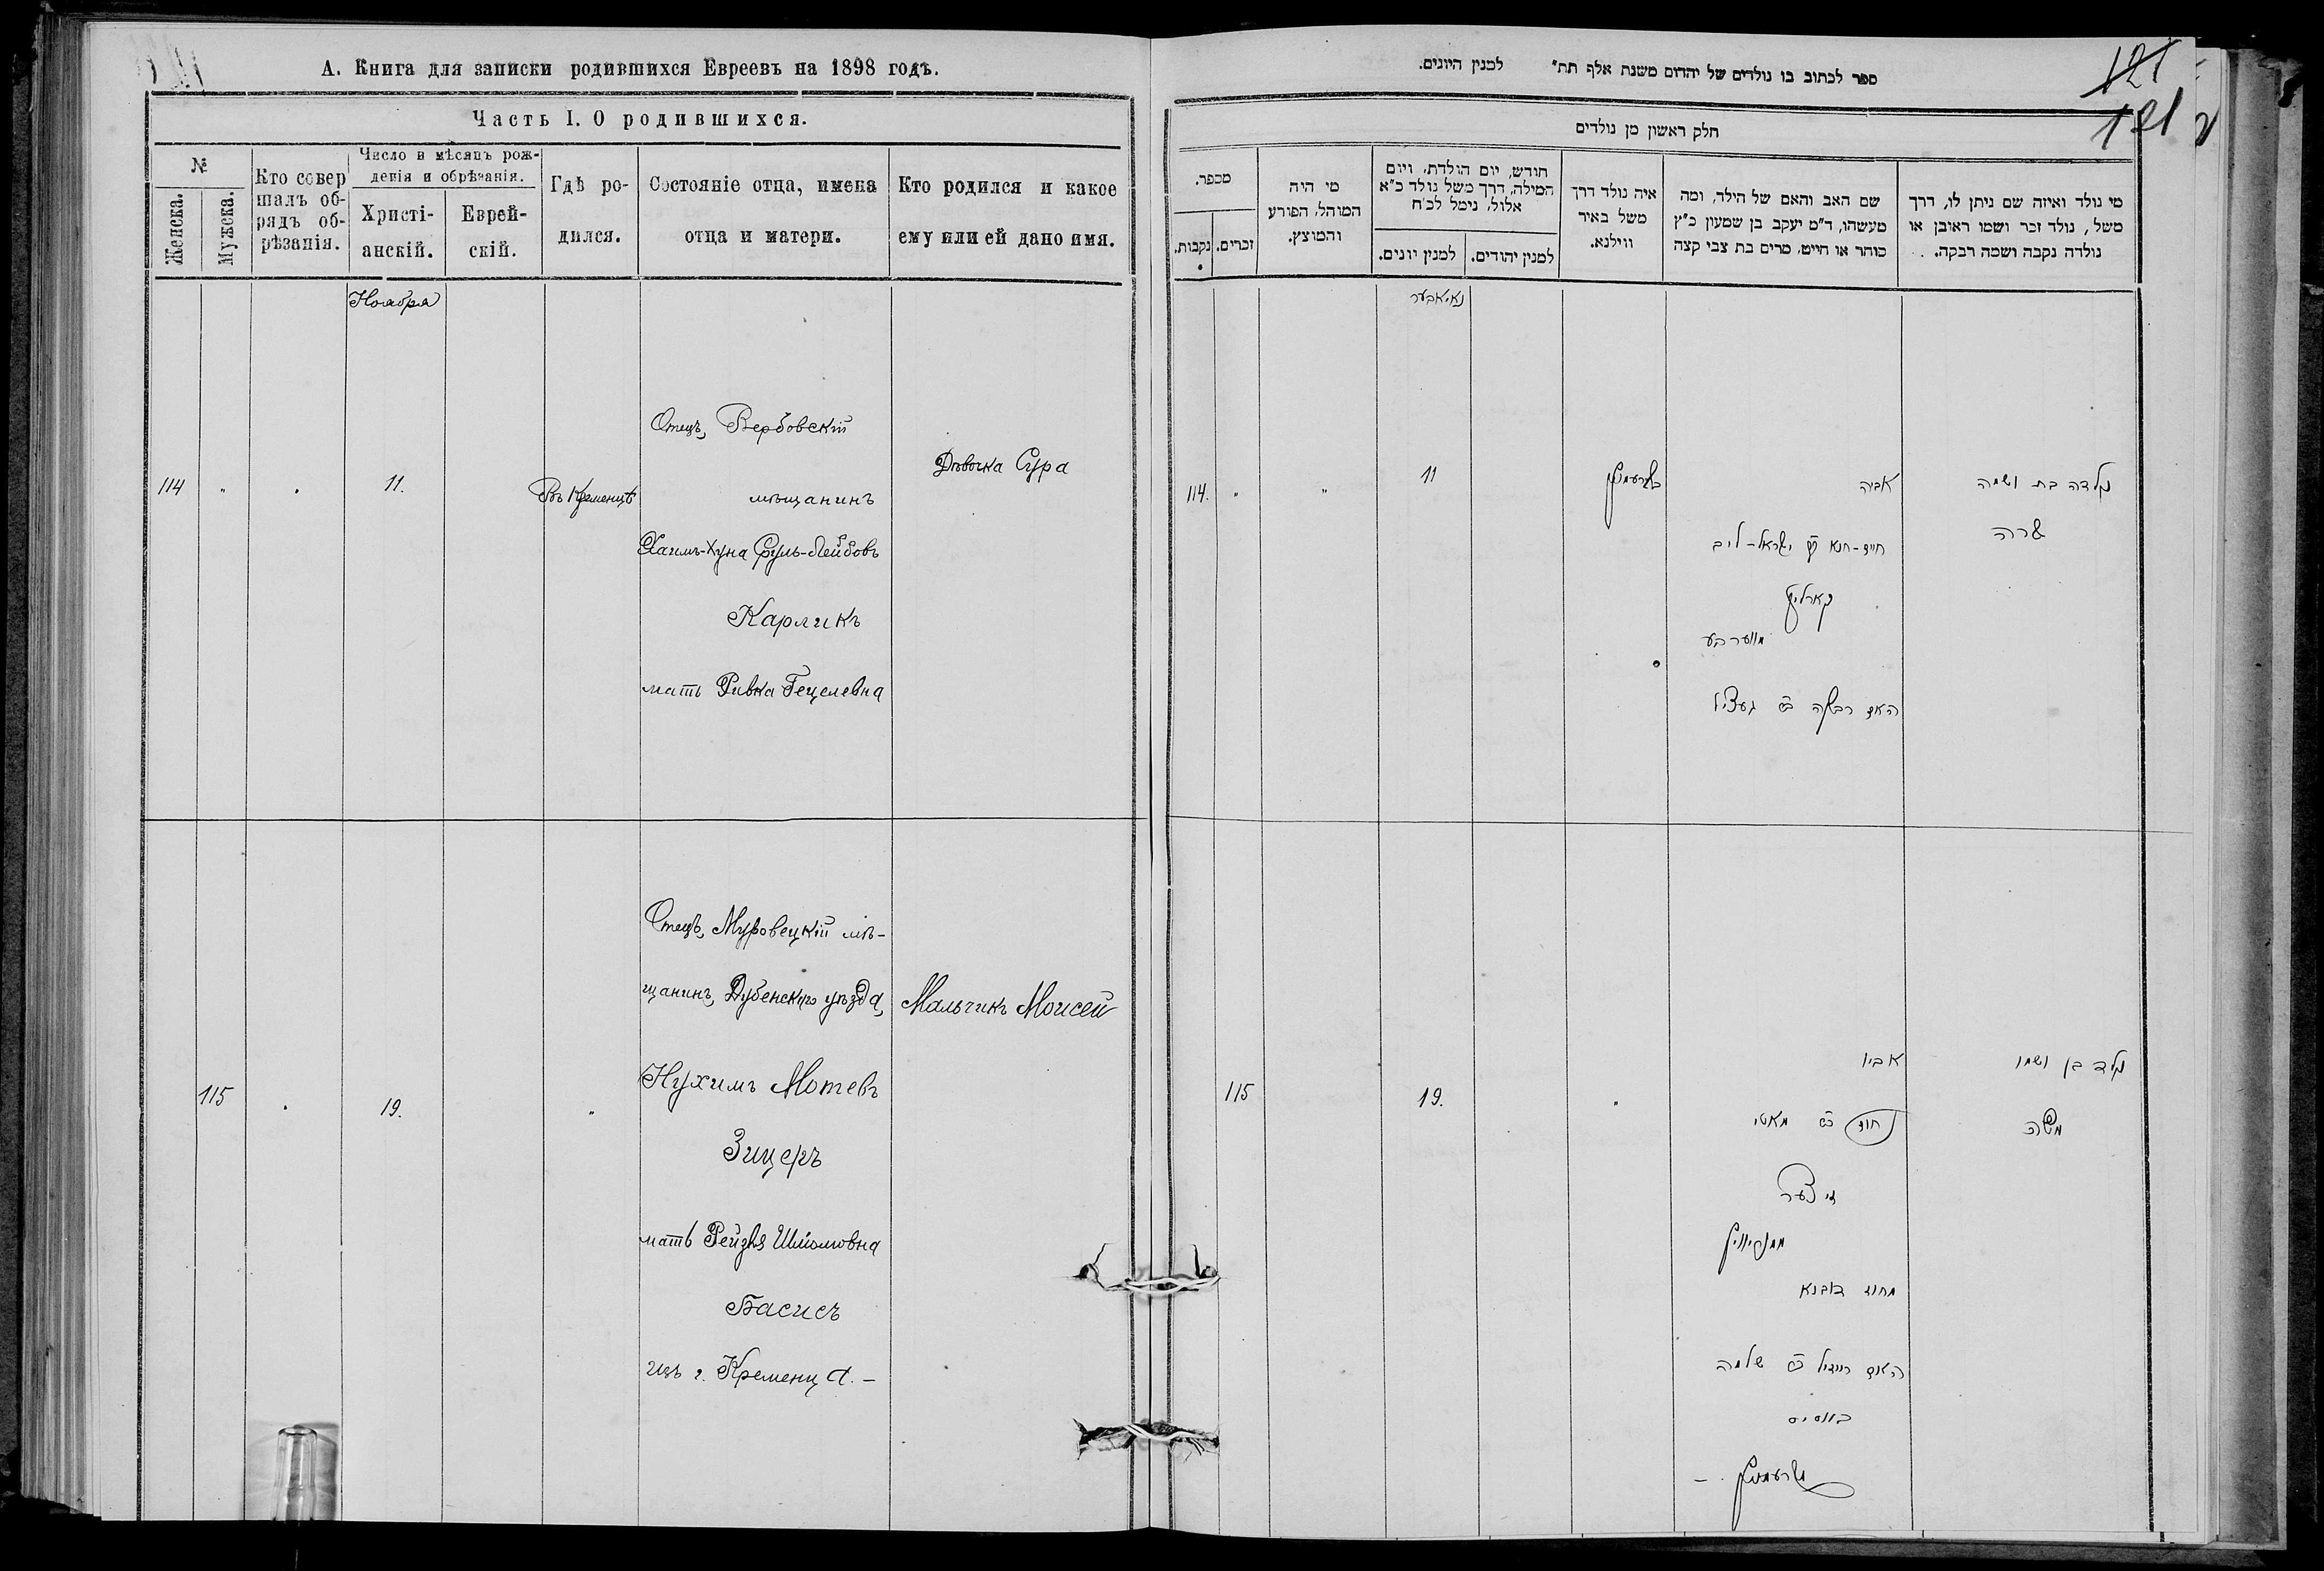 А. Книга для записки родившихся Евреевъ на 1898 годъ.
Часть I. О родившихся.
№
Женска.
Мужска.
Кто совер
шалъ об-
рядъ об-
рѣзанія.
Число и мѣсяцъ рож-
денія и обрѣзанія.
Христі-
анскій.
Еврей-
скій.
Гдѣ ро-
дился.
Состояніе отца, имена
отца и матери.
Кто родился и какое
ему или ей дано имя.
Ноября
114 " . 11.
Въ Кременцѣ
Отецъ, Вербовскій
мѣщанинъ
Хаимъ-Хуна Сруль-Лейбовъ
Карликъ
мать Ривка Гецелевна
Дѣвочка Сура
115 . 19. "
Отецъ, Муровецкій мѣ-
щанинъ, Дубенскаго уѣзда,
Нухимъ Мотевъ
Зицеръ
мать Рейзя Шліомовна
Басисъ
изъ г. Кременца. –
Мальчикъ Моисей
ספר לכתוב בו נולדים של יהדום משנת אלף תת״ למנין היונים.
121
121
חלק ראשון מן נולדים
מי נולד ואיזה שם ניתן לו, דרך
משל, נולד זכר ושמו ראובן או
נולדה נקבה ושמה רבקה.
שם האב והאם של הילד, ומה
מעשהו, ד״מ יעקב בן שמעון כ״ץ
סוחר או חייט, מרים בת צבי קצה
איה נולד דרך
משל באיר
ווילנא.
חודש, יום הולדת, ויום
המילה, דרך משל נולד כ״א
אלול, נימל לכ״ח
למנין יהודים.
למנין יונים.
מי היה
המוהל, הפורע
והמוצץ.
מספר.
זכרים.
נקבות.
נאיאבער
נולדה בת ושמה
שרה
אביה
חיים-חנא ישראל-ליב
קארליק
מווערבע
האם רבקה געציל
11
" "
114.
נולד בן ושמו
משה
אביו
נחום מאטי
זיצער
מחוז דובנא
האם רייזיל שלמה
באסיס
"
19.
115